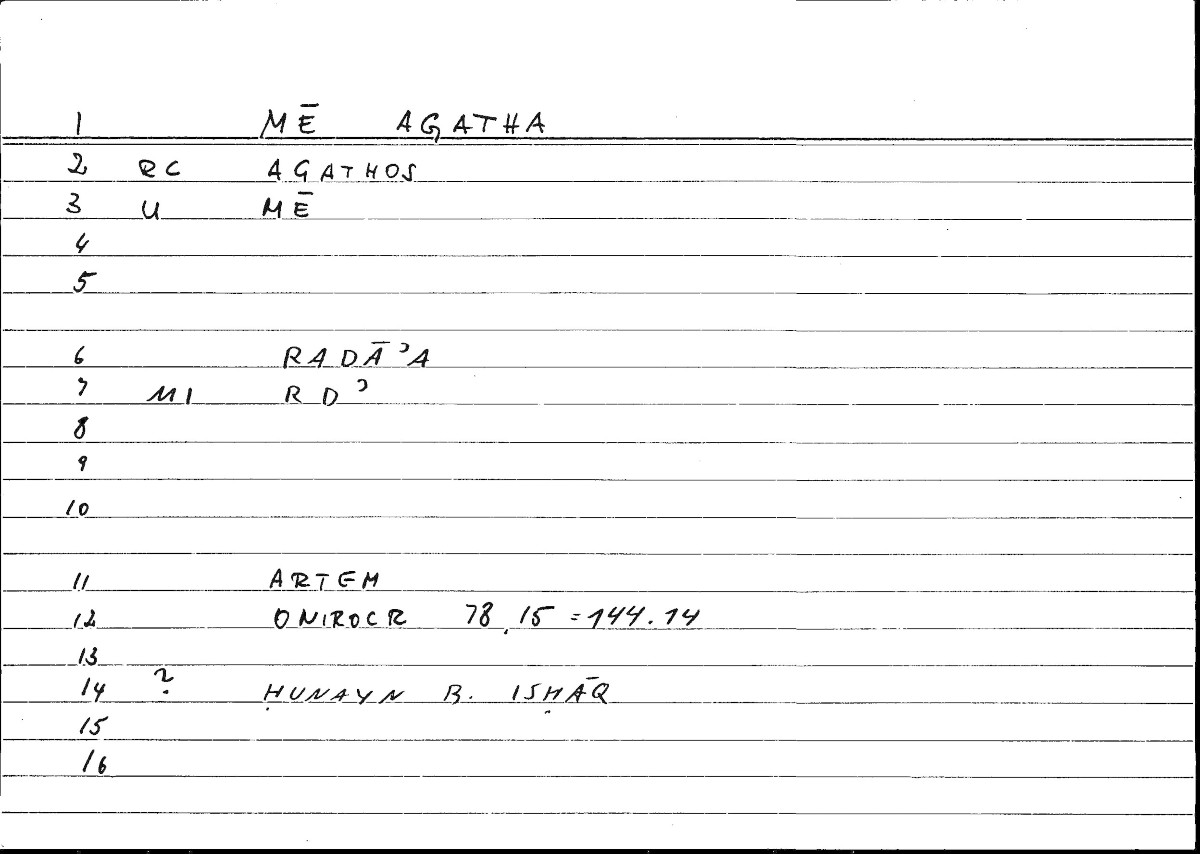 1 MĒ AGATHA
2 RC AGATHOS
3 U MĒ
4
5
6 RADĀʾA
7 MI RDʾ
8
9
10
11 ARTEM
12 ONIROCR 78.15 = 144.14
13
14 ? ḤUNAYN B. ISḤĀQ
15
16